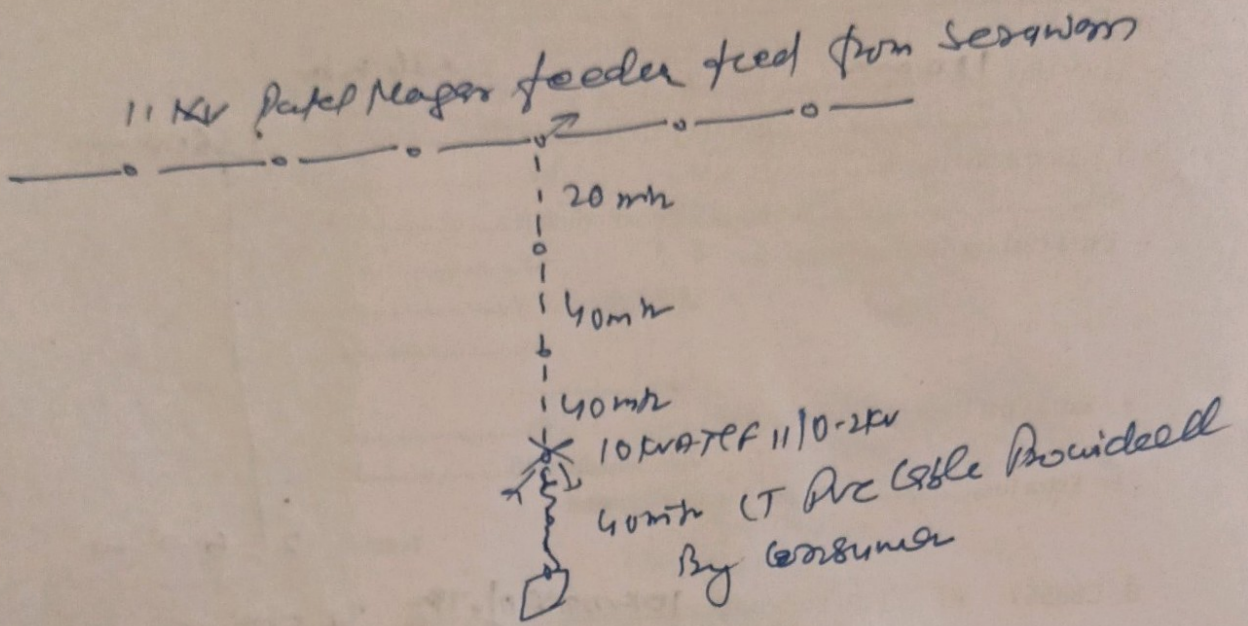 11 KV Patel Nagar feeder feed from Serawan
20 mtr
40mtr
40mtr
10 KVA TPF 11/0-2KV
40mtr LT Pvc Cable Provideed
By consumer